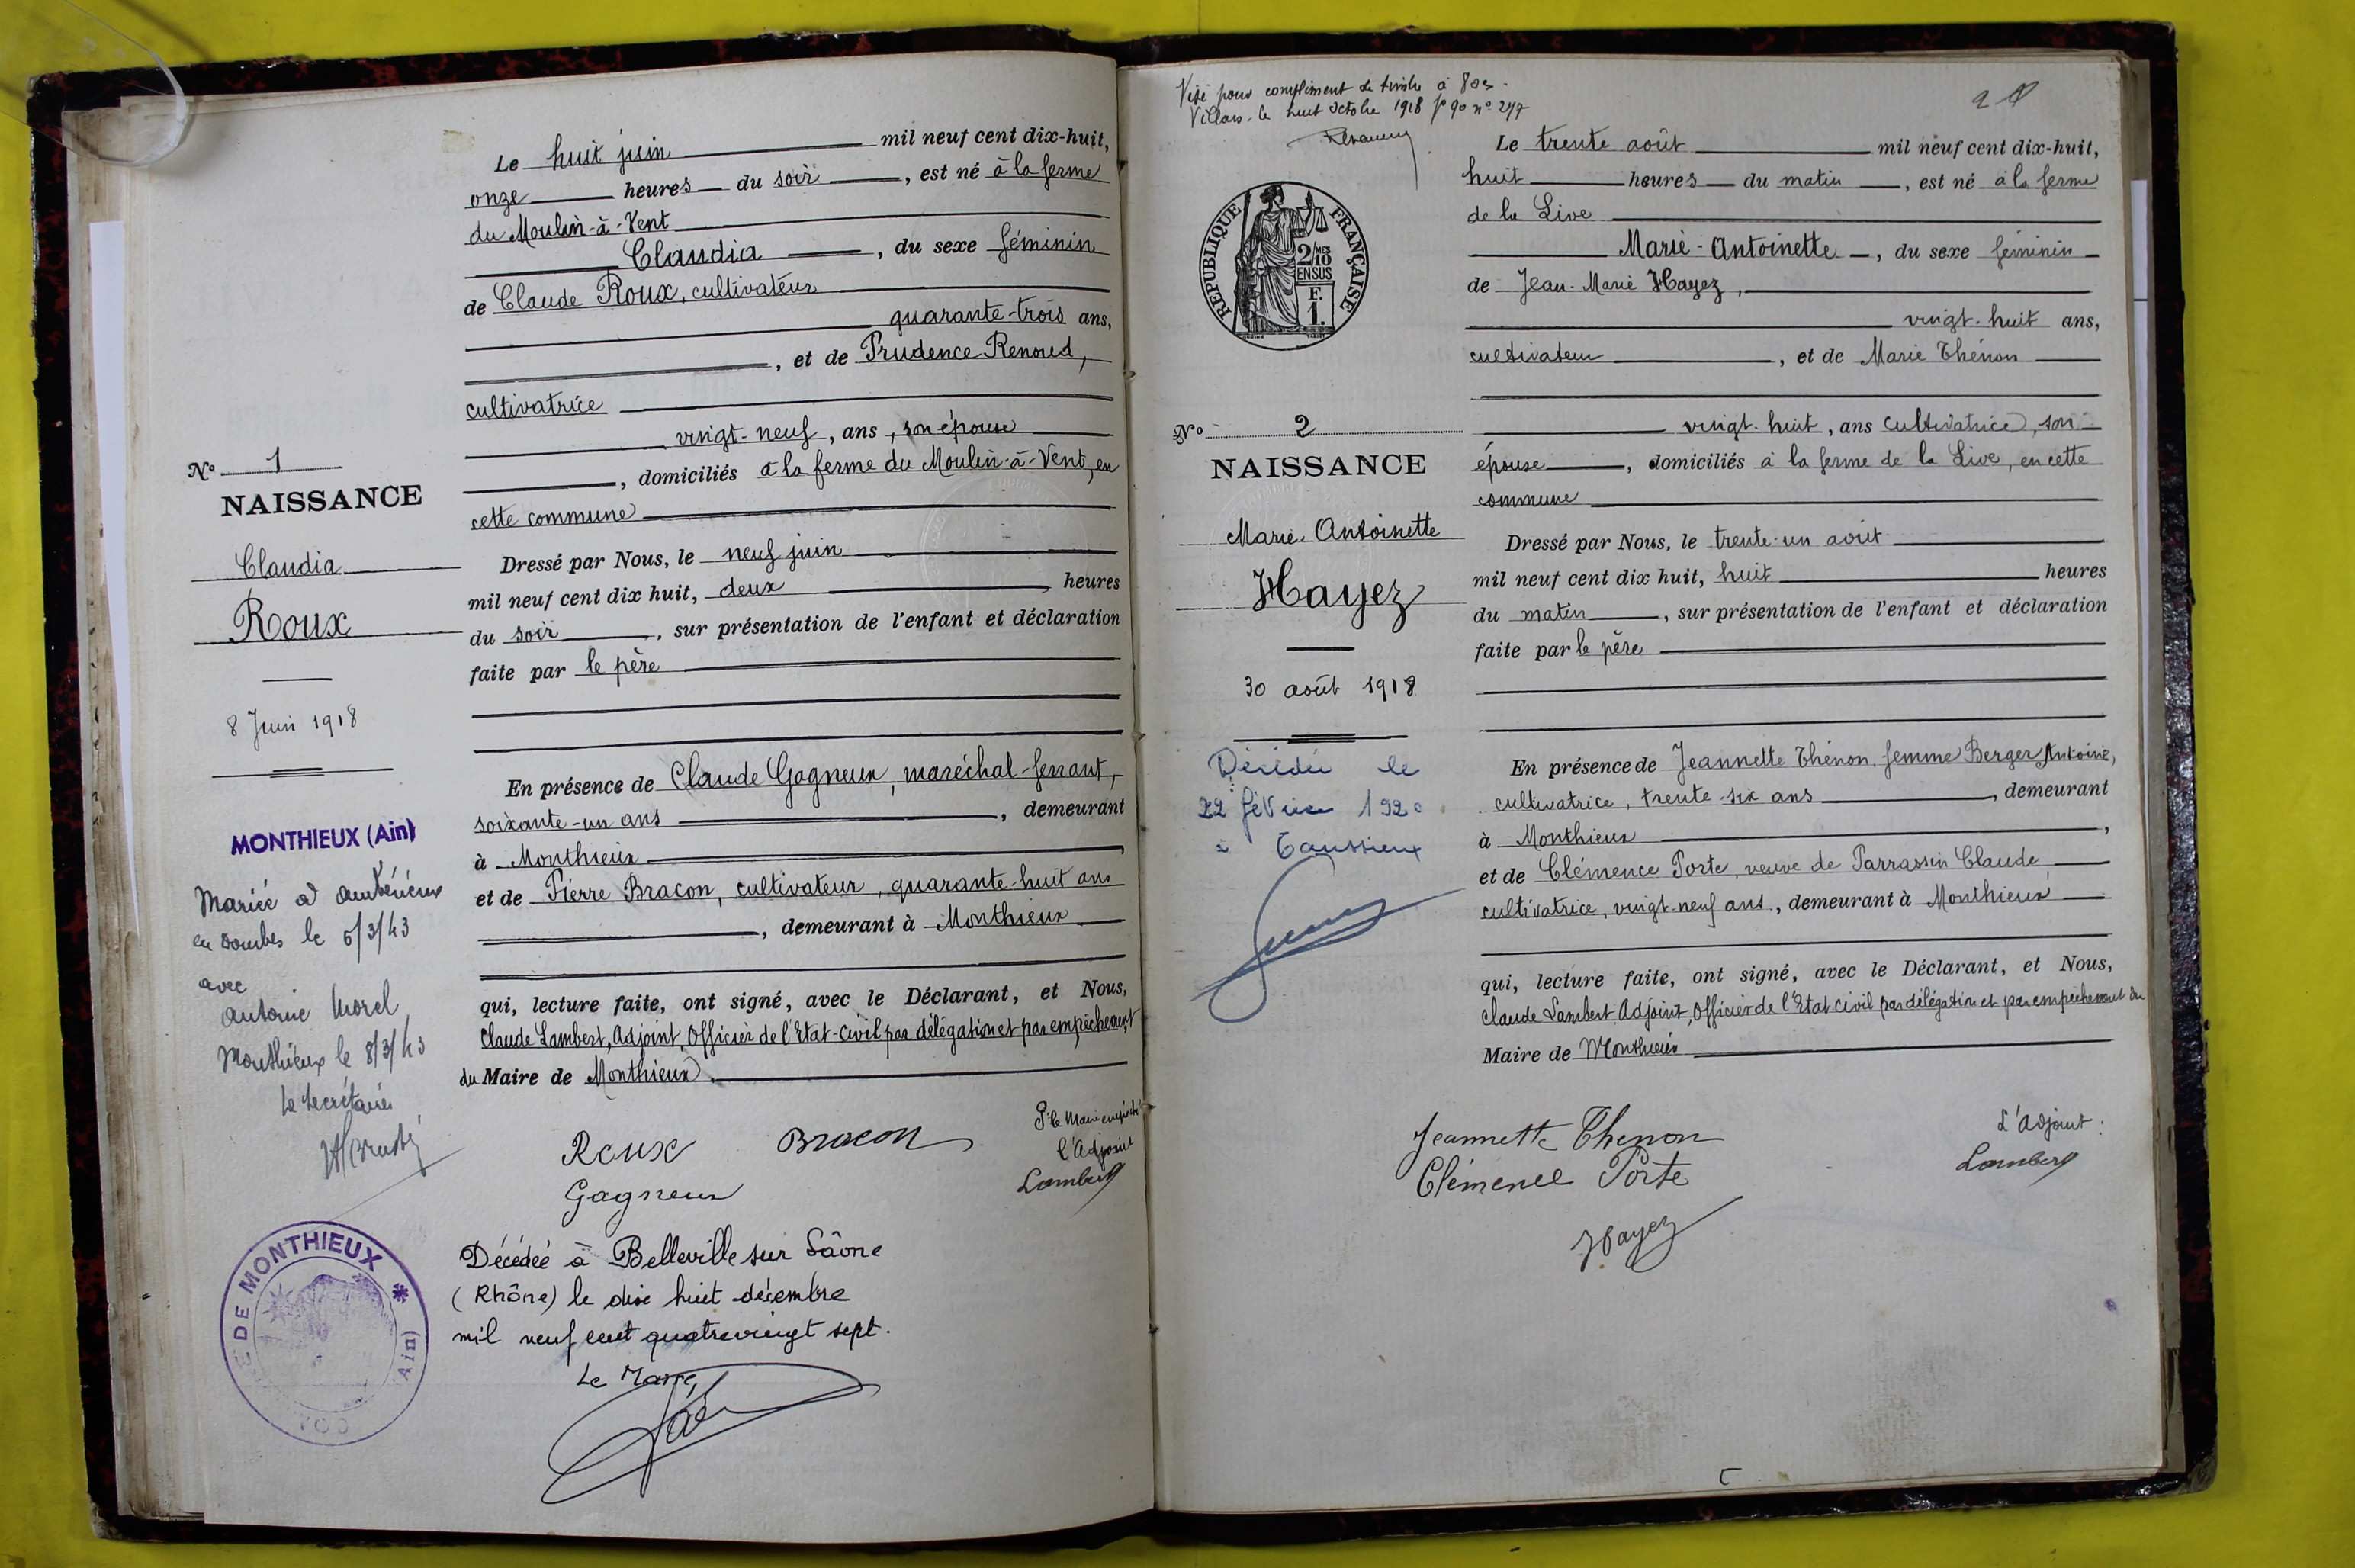 Le huit juin mil neuf cent dix-huit,
onze heures du soir, est né à la ferme
du Moulin-à-Vent
Claudia, du sexe féminin
de Claude Roux, cultivateur
quarante-trois ans,
, et de Prudence Renoud,
cultivatrice
vingt-neuf, ans, son épouse
, domiciliés à la ferme du Moulin-à-Vent, en
cette commune
Dressé par Nous, le neuf juin
mil neuf cent dix huit, deux heures
du soir, sur présentation de l'enfant et déclaration
faite par le père
En présence de Claude Gagneux, maréchal-ferrant,
soixante-un ans, demeurant
à Monthieux
et de Pierre Bracon, cultivateur, quarante-huit ans
, demeurant à Monthieux
qui, lecture faite, ont signé, avec le Déclarant, et Nous,
Claude Lambert, Adjoint, Officier de l'Etat-Civil par délégation et par empêchement
du Maire de Monthieux.
Roux Bracon
Gagneux
P. le Maire empêché
l'Adjoint
Lambert
Décédée à Belleville sur Saône
(Rhône) le dix huit décembre
mil neuf cent quatrevingt sept.
Le Maire,
No 1
NAISSANCE
Claudia
Roux
8 Juin 1918
MONTHIEUX (Ain)
Mariée à Ambérieux
en Dombes le 6/3/43
avec
Antoine Morel
Monthieux le 8/3/43
Le Secrétaire
DE MONTHIEUX * Ain)
Visé pour complément de timbre à
Villars, le huit octobre 1918 fo 90 no 247
2
RÉPUBLIQUE FRANÇAISE
2/10
MES
EN SUS
F.
1.
Le trente août mil neuf cent dix-huit,
huit heures du matin, est né à la ferme
de la Live
Marie-Antoinette, du sexe féminin
de Jean-Marie Hayez,
vingt-huit ans,
cultivateur, et de Marie Thénon
vingt-huit, ans cultivatrice, son
épouse, domiciliés à la ferme de la Live, en cette
commune
Dressé par Nous, le trente-un août
mil neuf cent dix huit, huit heures
du matin, sur présentation de l'enfant et déclaration
faite par le père
En présence de Jeannette Thénon, femme Berger Antoine,
cultivatrice, trente-six ans, demeurant
à Monthieux,
et de Clémence Porte, veuve de Parrassin Claude
cultivatrice, vingt-neuf ans, demeurant à Monthieux
qui, lecture faite, ont signé, avec le Déclarant, et Nous,
Claude Lambert Adjoint, Officier de l'Etat civil par délégation et par empêchement du
Maire de Monthieux
Jeannette Thenon
Clémence Porte
Hayez
L'Adjoint:
Lambert
No 2
NAISSANCE
Marie-Antoinette
Hayez
30 août 1918
Décédée le
22 février 1920
à